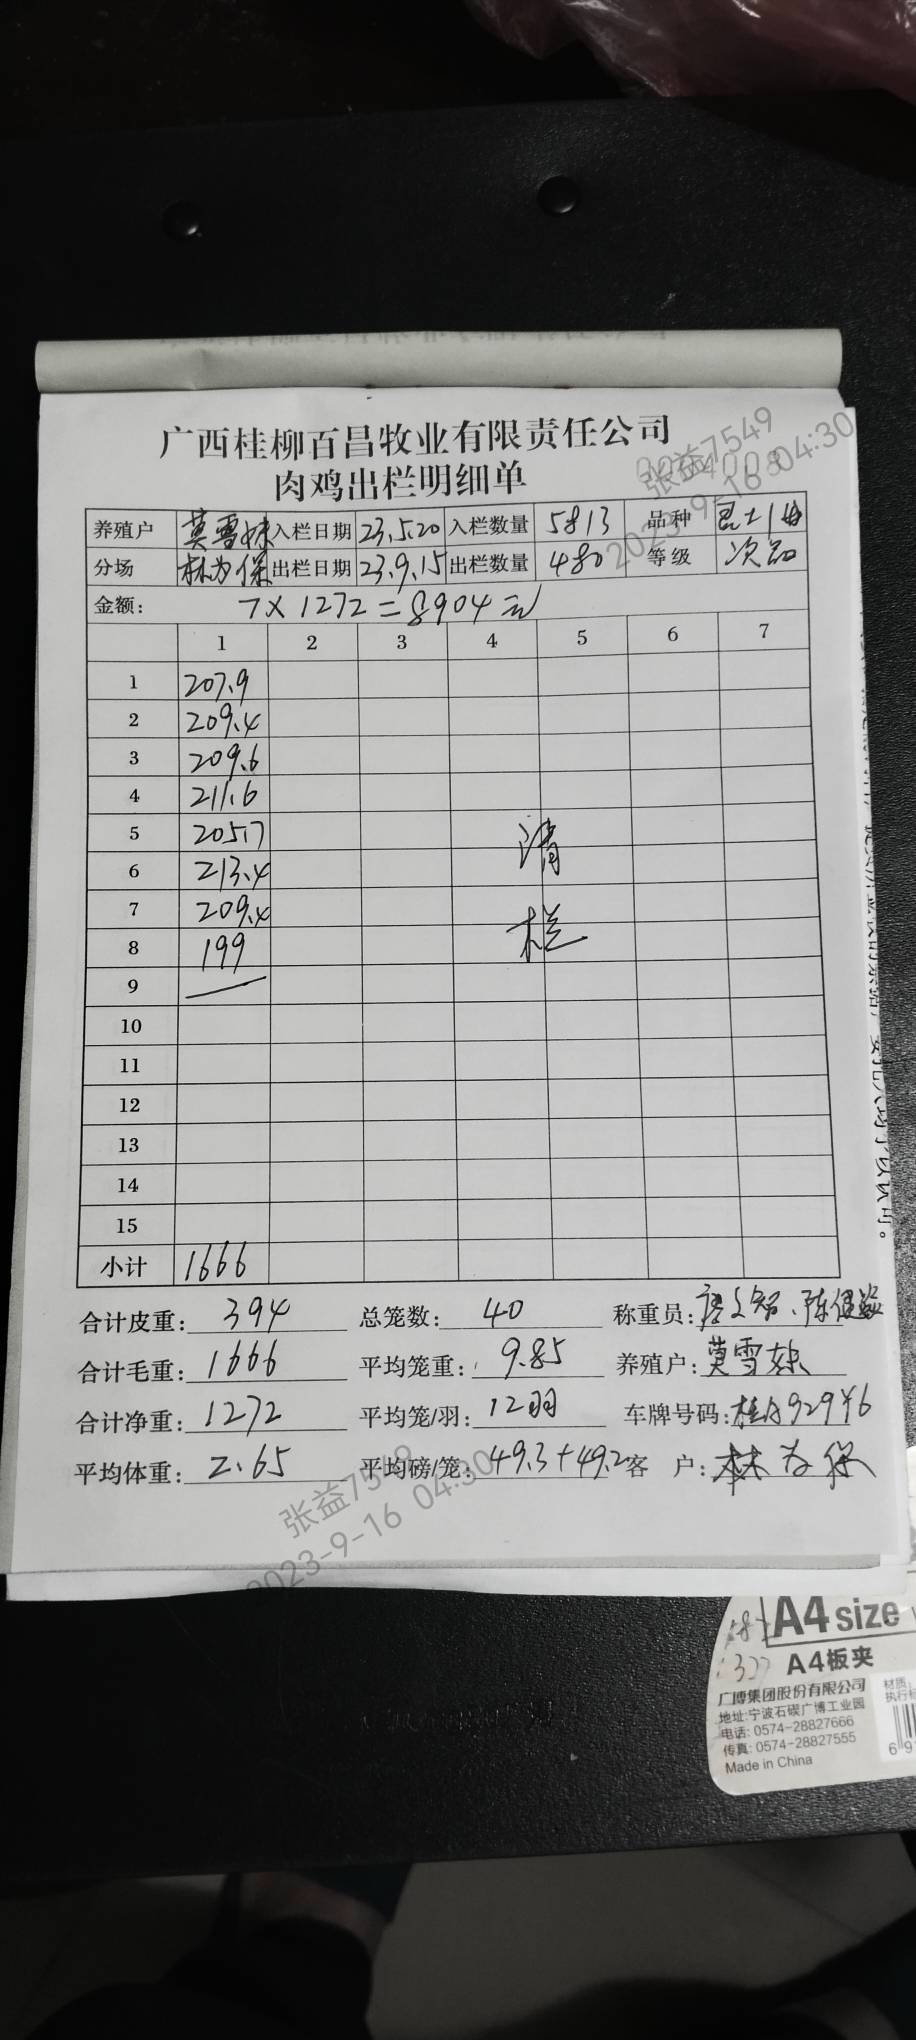 广西桂柳百昌牧业有限责任公司
肉鸡出栏明细单
张益7549
2023-9-16 04:30
养殖户 莫雪妹 入栏日期 23.5.20 入栏数量 5813 品种
分场 林为保 出栏日期 23.9.15 出栏数量 480 等级 次品
金额: 7×1272=8904元
1 2 3 4 5 6 7
1 207.9
2 209.4
3 209.6
4 211.6
5 205.7
6 213.4
7 209.4
8 199
9
10
11
12
13
14
15
清
栏
小计 1666
合计皮重: 394 总笼数: 40 称重员:
合计毛重: 1666 平均笼重: 9.85 养殖户: 莫雪妹
合计净重: 1272 平均笼/羽: 12羽 车牌号码:
平均体重: 2.65 平均磅/笼: 49.3+49.2 客户: 林为保
张益7549
2023-9-16 04:30
A4 size
A4板夹
广博集团股份有限公司
地址:宁波石碶广博工业园
电话: 0574-28827666
传真: 0574-28827555
Made in China
材质: